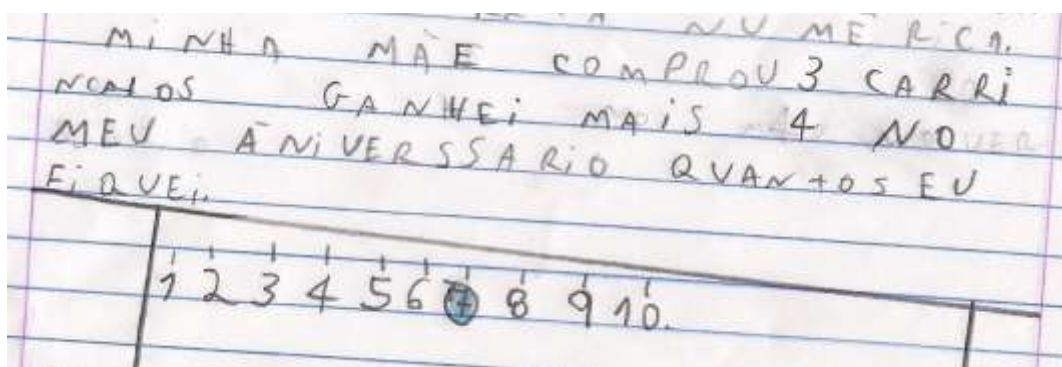 NUMÉRICA.
MINHA MÃE COMPROU 3 CARRI
NHOS GANHEI MAIS 4 NO
MEU ANIVERSSARIO QUANTOS EU
FIQUEI.
1 2 3 4 5 6 7 8 9 10.